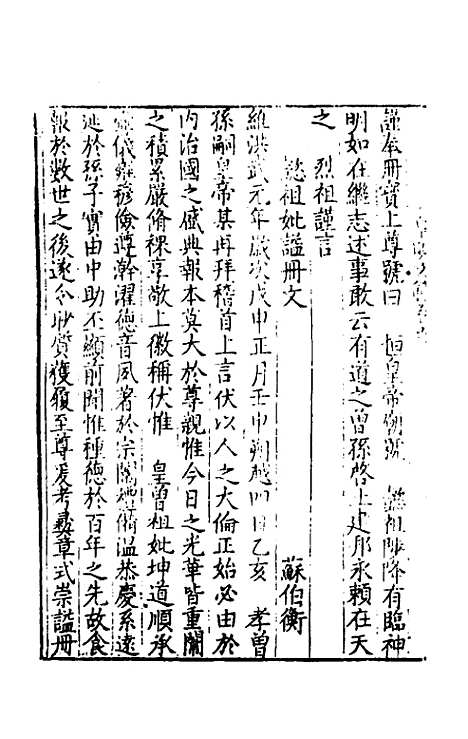 謹奉冊寶上尊號曰 恒皇帝廟號 懿祖陟降有臨神
明如在繼志述事敢云有道之曾孫啓土建邦永賴在天
之 烈祖謹言
懿祖妣謚冊文 蘇伯衡
維洪武元年歲次戊申正月壬申朔越四日乙亥 孝曾
孫嗣皇帝某再拜稽首上言伏以人之大倫正始必由於
內治國之盛典報本莫大於尊親惟今日之光華皆重闈
之積累嚴脩祼享敬上徽稱伏惟 皇曾祖妣坤道順承
儀雍穆儉遵澣濯德音夙著於宗閫備溫恭慶系遠
延於孫子實由中助丕顯前聞惟種德於百年之先故食
報於數世之後遂令眇質獲履至尊爰考彝章式崇謚冊